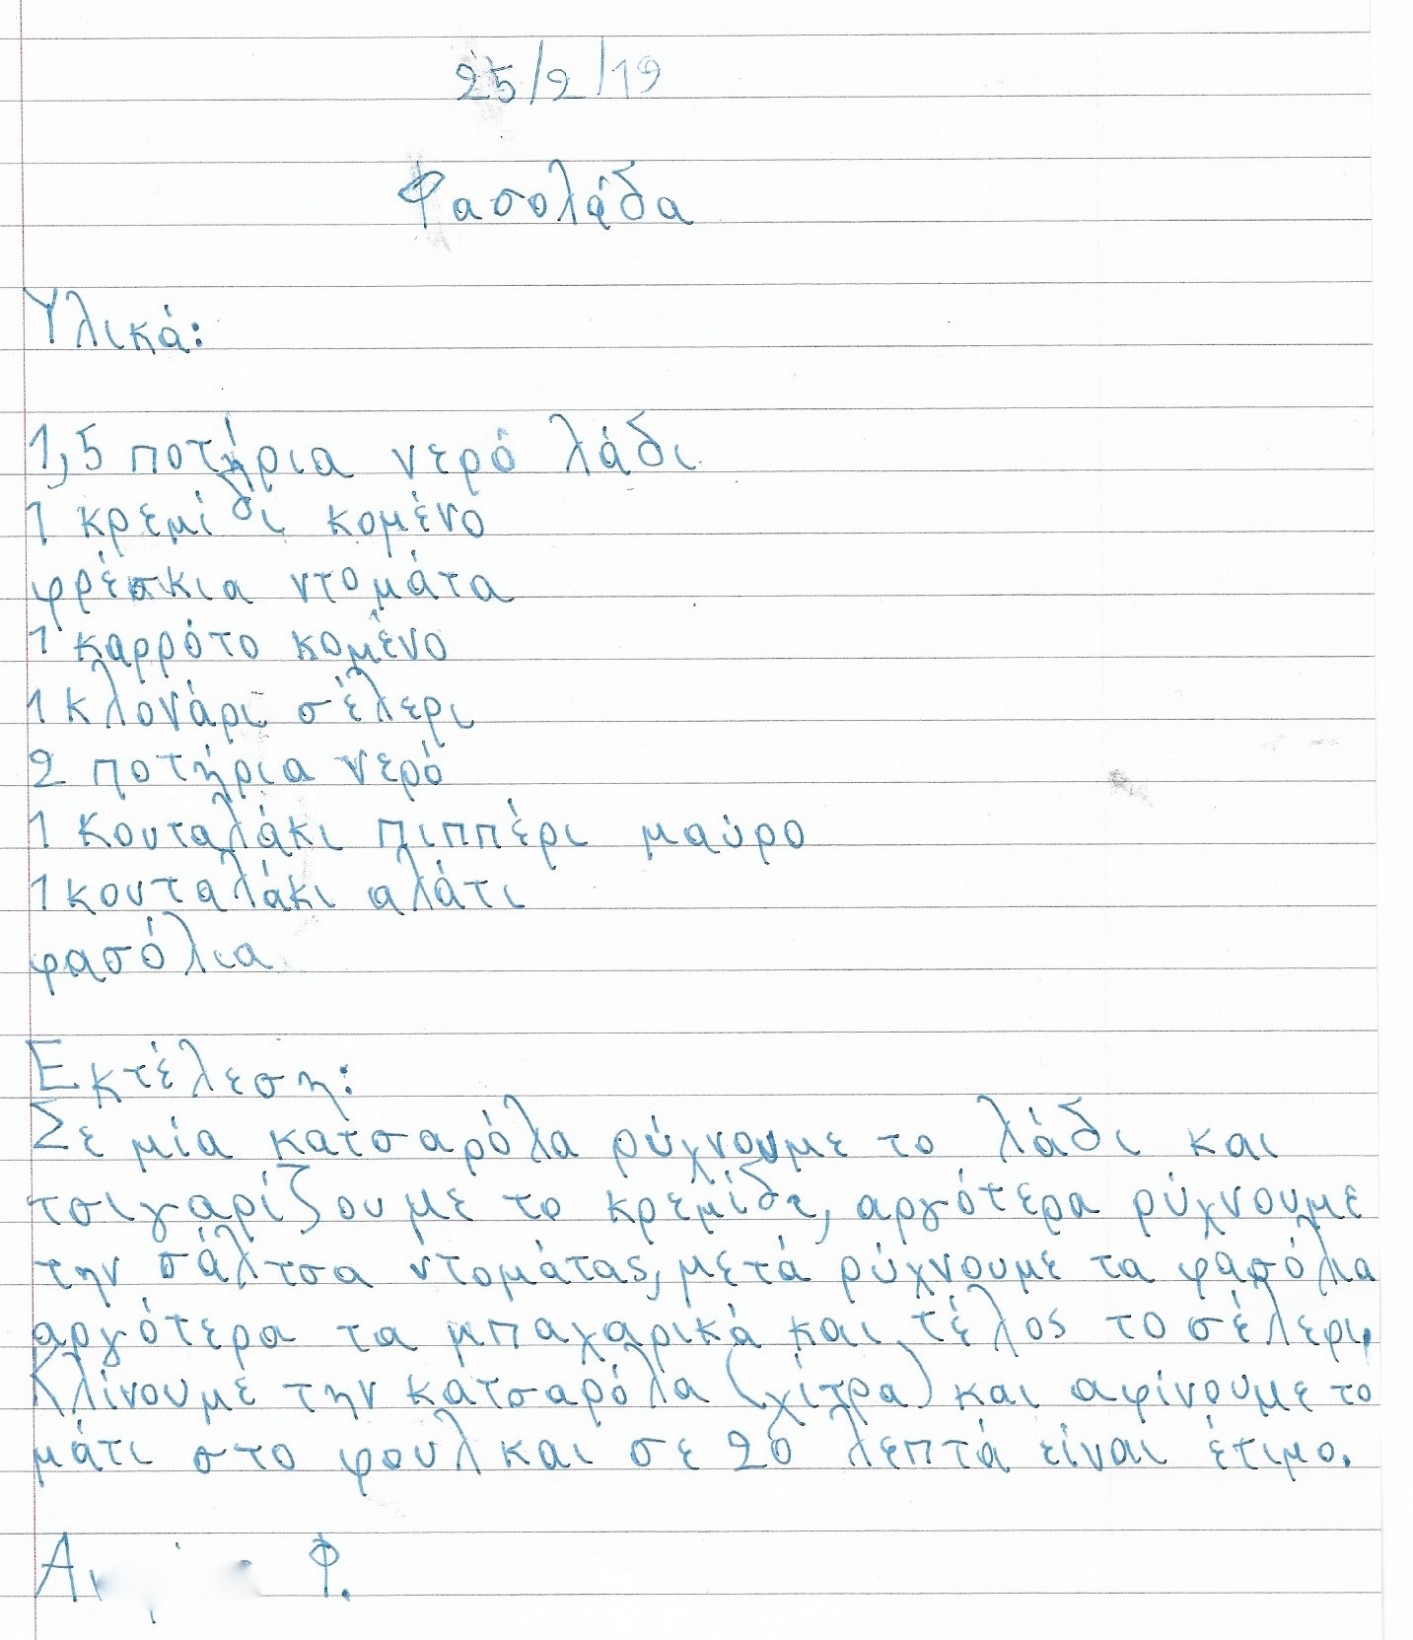 25/2/19
Φασολάδα
Υλικά:
1,5 ποτήρια νερό λάδι
1 κρεμίδι κομένο
φρέσκια ντομάτα
1 καρρότο κομένο
1 κλονάρι σέλερι
2 ποτήρια νερό
1 κουταλάκι πιππέρι μαύρο
1 κουταλάκι αλάτι
φασόλια
Εκτέλεση:
Σε μία κατσαρόλα ρύχνουμε το λάδι και
τσιγαρίζουμε το κρεμίδι, αργότερα ρύχνουμε
την σάλτσα ντομάτας, μετά ρύχνουμε τα φασόλια
αργότερα τα μπαχαρικά και τέλος το σέλερι.
Κλίνουμε την κατσαρόλα (χίτρα) και αφίνουμε το
μάτι στο φουλ και σε 20 λεπτά είναι έτιμο.
Φ.